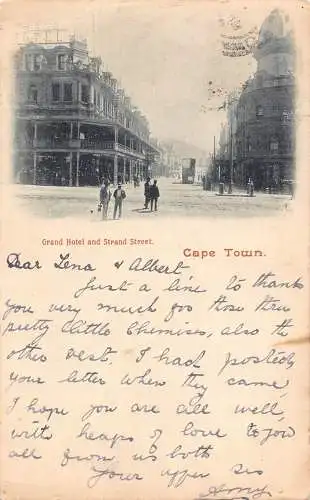 Grand Hotel and Strand Street.
Cape Town.
Dear Lena & Albert
Just a line to thank
you very much for those three
pretty little Chemises, also the
other vest. I had posted
your letter when they came
I hope you are all well,
with heaps of love to you
all from us both
Your affec sis
Amy